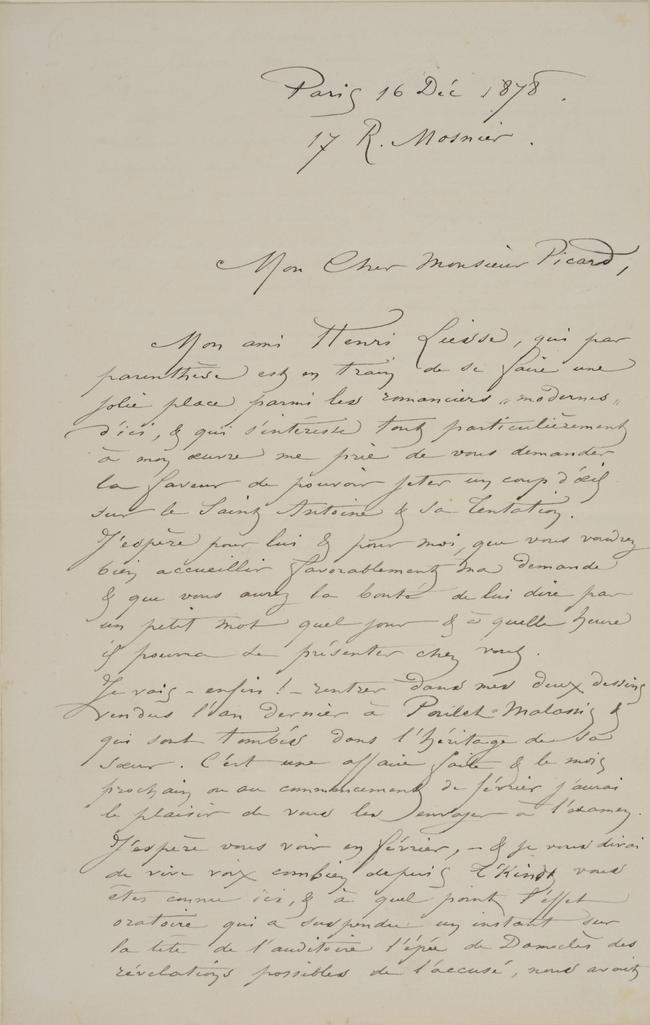 Paris 16 Déc 1878.
17 R. Mosnier.
Mon Cher Monsieur Picard,
Mon ami Henri Liesse, qui par
parenthèse est en train de se faire une
jolie place parmi les romanciers "modernes"
d'ici, & qui s'intéresse tout particulièrement
à mon œuvre me prie de vous demander
la faveur de pouvoir jeter un coup d'œil
sur le Saint Antoine & sa Tentation.
J'espère pour lui & pour moi, que vous voudrez
bien accueillir favorablement ma demande
& que vous aurez la bonté de lui dire par
un petit mot quel jour & à quelle heure
il pourra se présenter chez vous.
Je vais - enfin! - rentrer dans mes deux dessins
vendus l'an dernier à Poulet-Malassis &
qui sont tombés dans l'héritage de sa
sœur. C'est une affaire faite & le mois
prochain ou au commencement de février j'aurai
le plaisir de vous les envoyer à l'examen.
J'espère vous voir en février, - & je vous dirai
de vive voix combien depuis T'Kindt vous
êtes connu ici, & à quel point l'effet
oratoire qui a suspendu un instant sur
la tête de l'auditoire l'épée de Damoclès des
révélations possibles de l'accusé, nous avait